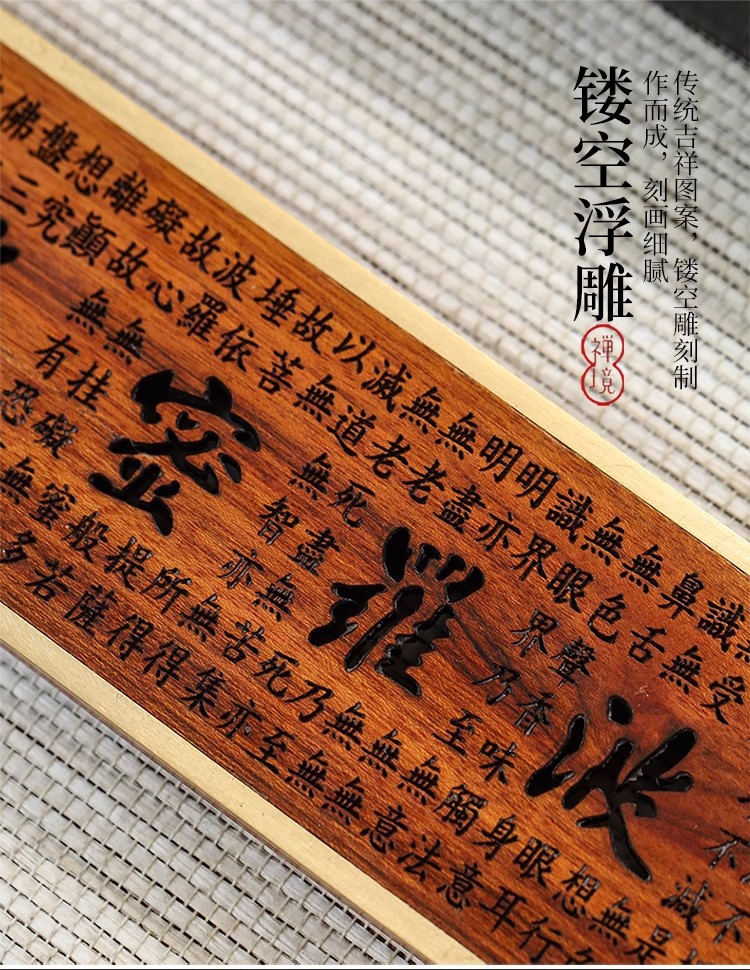 传统吉祥图案，镂空雕刻制
作而成，刻画细腻
镂空浮雕
禪境
波羅密
無受想行
識無眼耳
鼻舌身意
無色聲香味觸法
無眼界乃至無意
識界無無
明亦無無
明盡乃至
無老死亦
無老死盡無苦集
滅道無智亦無得
以無所得
故菩提薩
埵依般若
波羅蜜多
故心無
礙故無有恐
離顛
想究
盤三
佛